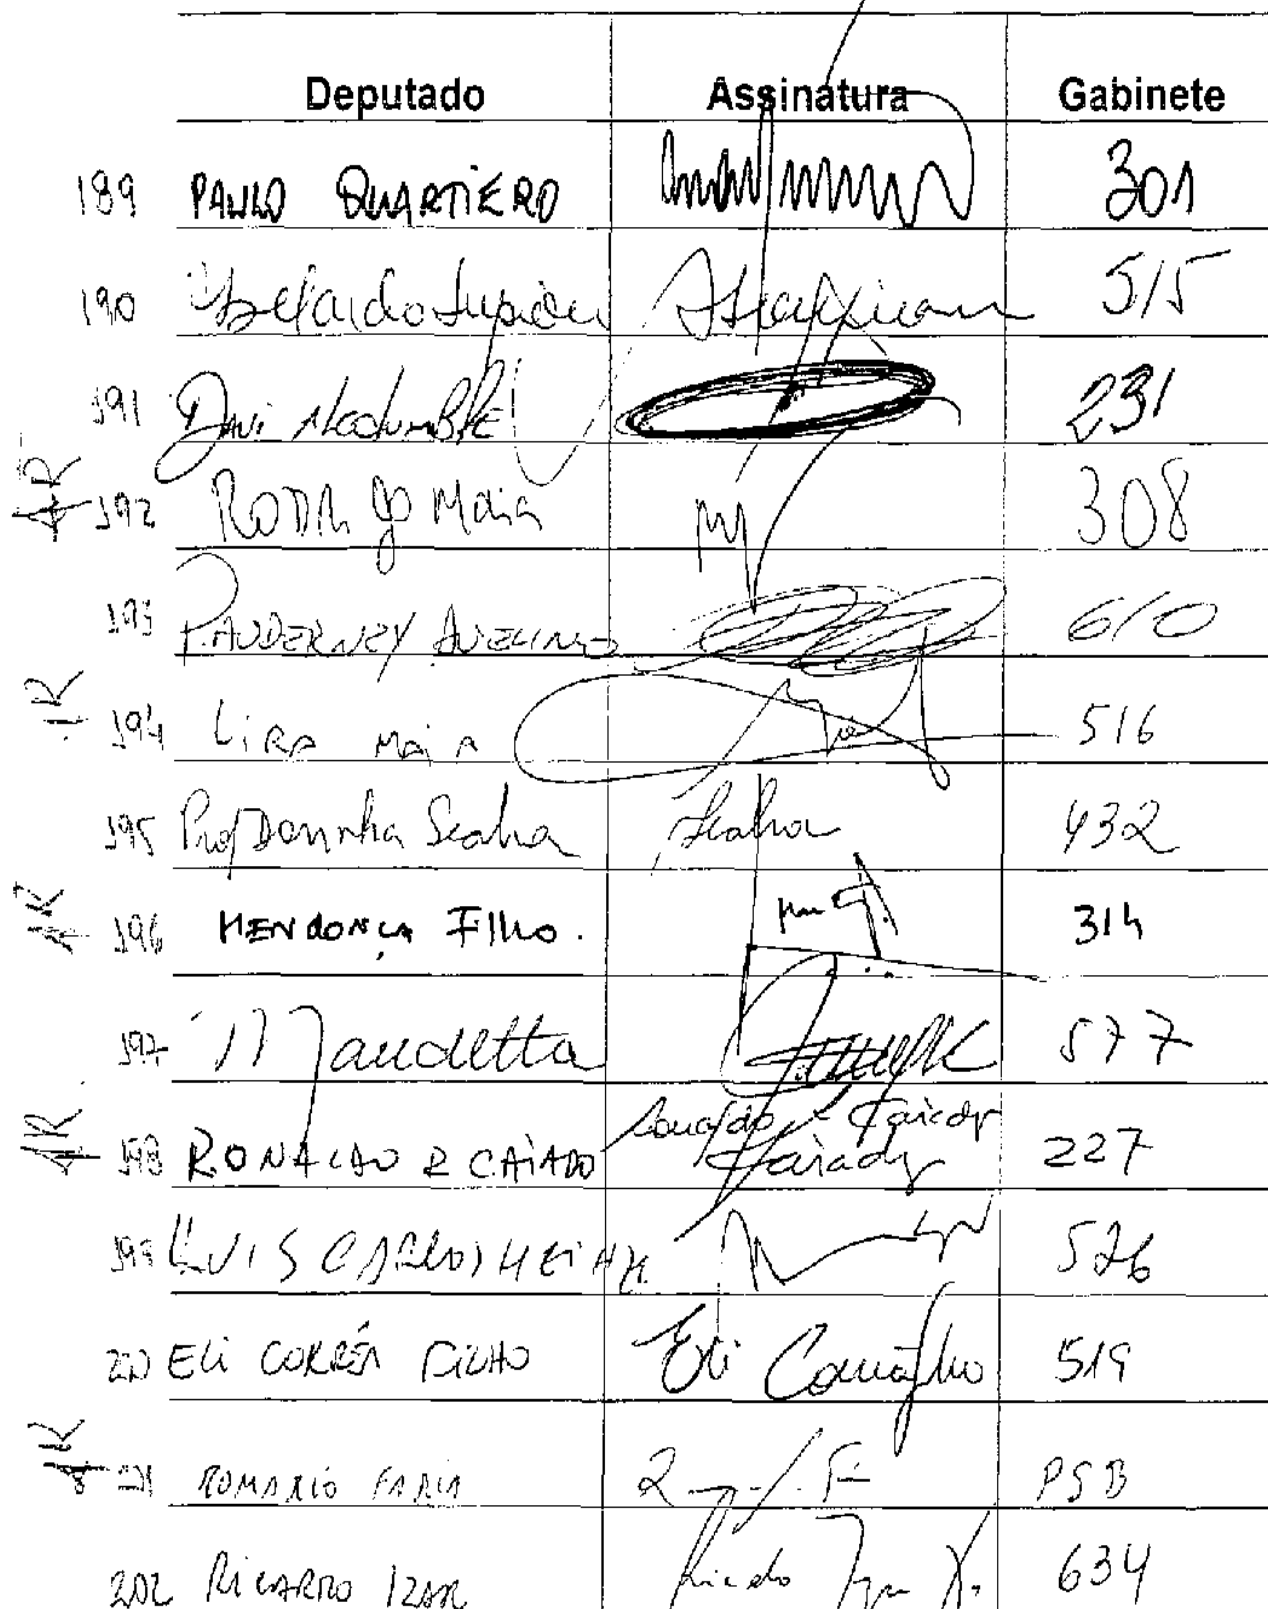 Deputado Assinatura Gabinete
189 PAULO QUARTIERO 301
190 Abelardo Lupion 515
191 Davi Alcolumbre 231
AR 192 RODRIGO Maia 308
193 PAUDERNEY AVELINO 610
AR 194 LIRA MAIA 516
195 Prof Dorinha Seabra Seabra 432
AR 196 MENDONÇA FILHO. 314
197 Mandetta 577
AR 198 RONALDO R CAIADO Ronaldo Caiado 227
Caiado
199 LUIS CARLOS HEINZE 526
200 ELI CORRÊA FILHO Eli Corrêa Filho 519
AR 201 ROMARIO FARIA PSB
202 RICARDO IZAR Ricardo Izar 634